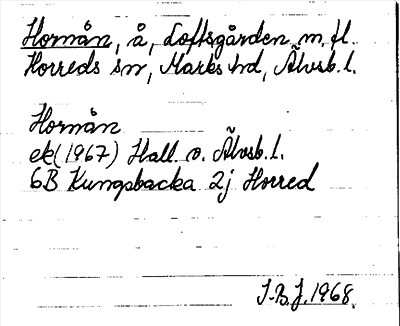 Hornån, å, Loftsgården m. fl.
Horreds sn, Marks hd, Älvsb. l.
Hornån
ek (1967) Hall. o. Älvsb. l.
6B Kungsbacka 2j Horred
I.-B.J. 1968.